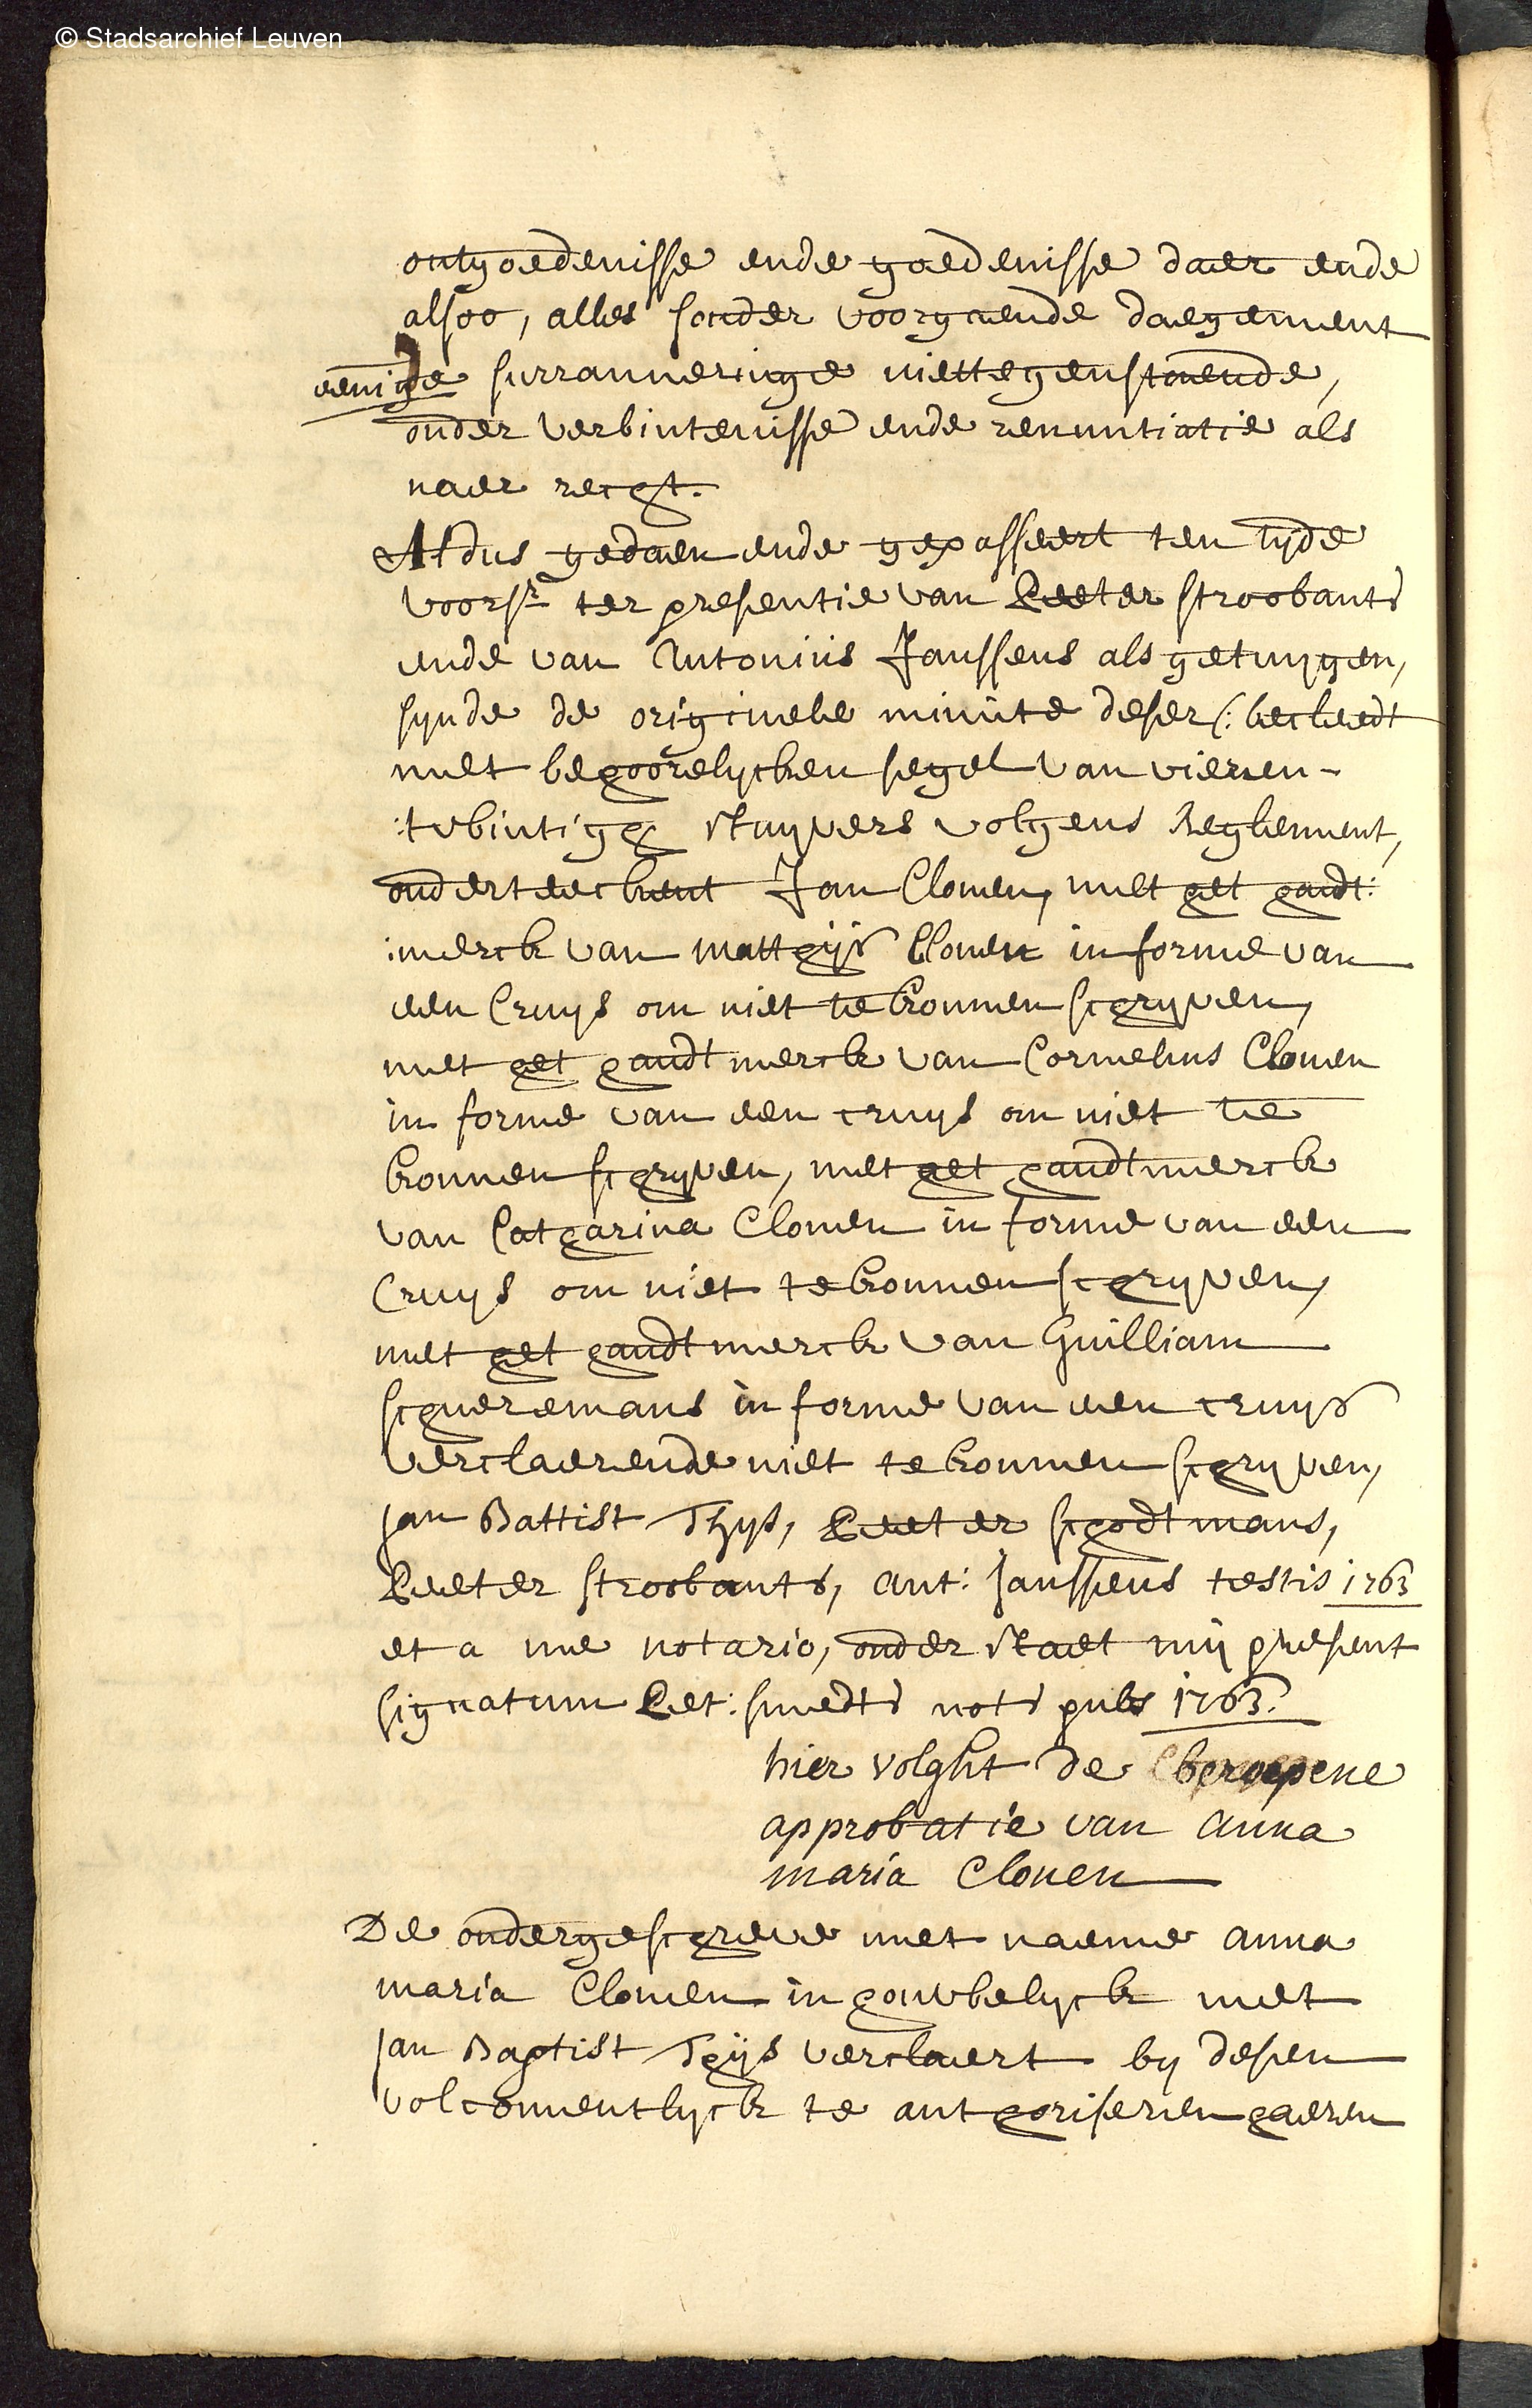 © Stadsarchief Leuven
ontgoedenisse ende goedenisse daer ende
alsoo, alles sonder voorgaende daegement
eenige surranneringe niettegenstaende,
onder verbintenisse ende renuntiatie als
naer recht.
Aldus gedaen ende gepasseert ten tyde
voorsr ter presentie van Peeter Stroobants
ende van Antonius Janssens als getuygen,
synde de originele minute deser /: becleedt
met behoorelycken segel van vieren-
:twintigh stuyvers volgens Reglement,
onderteeckent Jan Clouen, met het handt:
:merck van Matthijs Clouen in forme van
een Cruys om niet te konnen schryven,
met het handtmerck van Cornelius Clouen
in forme van een cruys om niet te
konnen schryven, met het handtmerck
van Catharina Clouen in forme van een
Cruys om niet te konnen schryven,
met het handtmerck van Guilliam
Schueremans in forme van een cruys
verclaerende niet te konnen schryven,
jan Battist Thys, Peeter Schodtmans,
Peeter Stroobants, ant: janssens testis 1763
et a me notario, onder staet mij present
signatum Pet: smedts nots pubs 1763.
hier volght de beroepene
approbatie van anna
maria Clouen
De ondergeschreve met naeme anna
maria Clouen in houwelyck met
jan Baptist Thijs verclaert by desen
volcomentlyck te authoriseren haeren